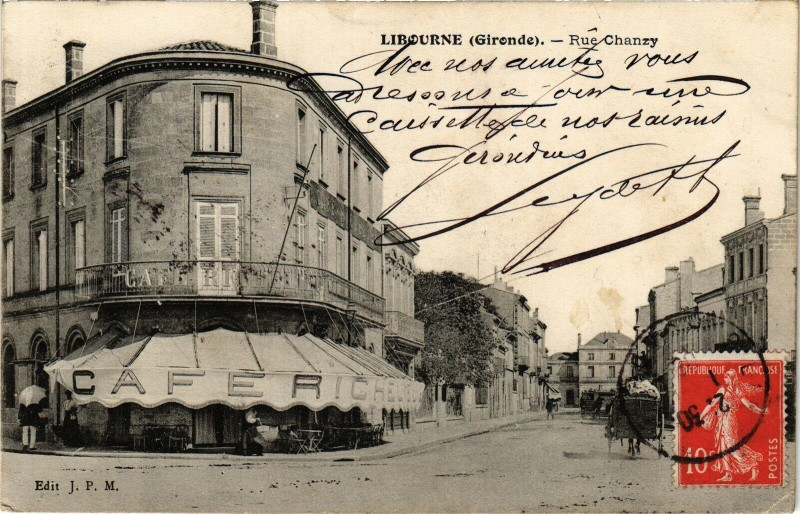 LIBOURNE (Gironde). — Rue Chanzy
Avec nos amitiés vous
adressons ce jour une
caissette de nos raisins
Girondins
CAFE RI
CAFE RICHE
REPUBLIQUE FRANÇAISE
10c
POSTES
Edit J. P. M.